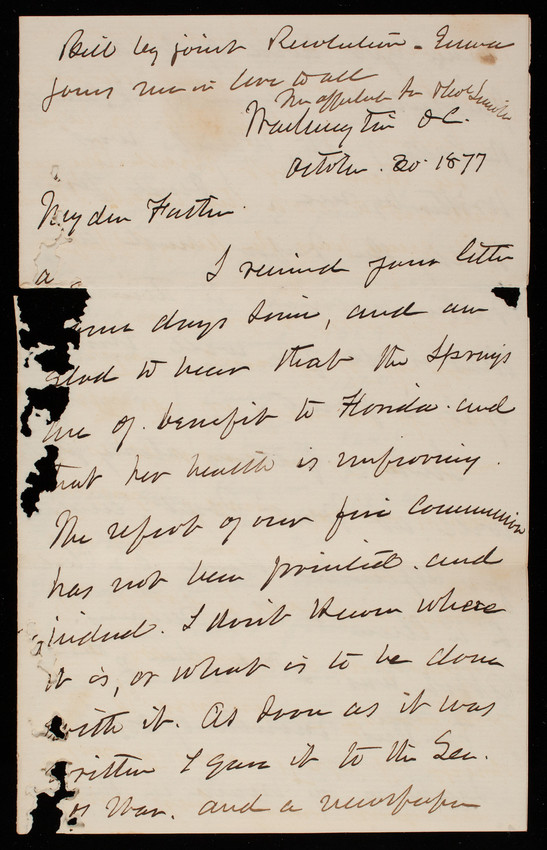 Bill by joint Resolution - Emma
joins me in love to all
Yr affectate son Thos L. Lincoln
Washington D.C.
October. 20. 1877
My dear Father.
I received your letter
a
some days since, and am
glad to hear that the Springs
are of. benefit to Florida. and
that her health is improving.
The report of our fire Commission
has not been printed. and
indeed. I don't know where
it is, or what is to be done
with it. As soon as it was
written I gave it to the Sec.
of War. and a newspaper